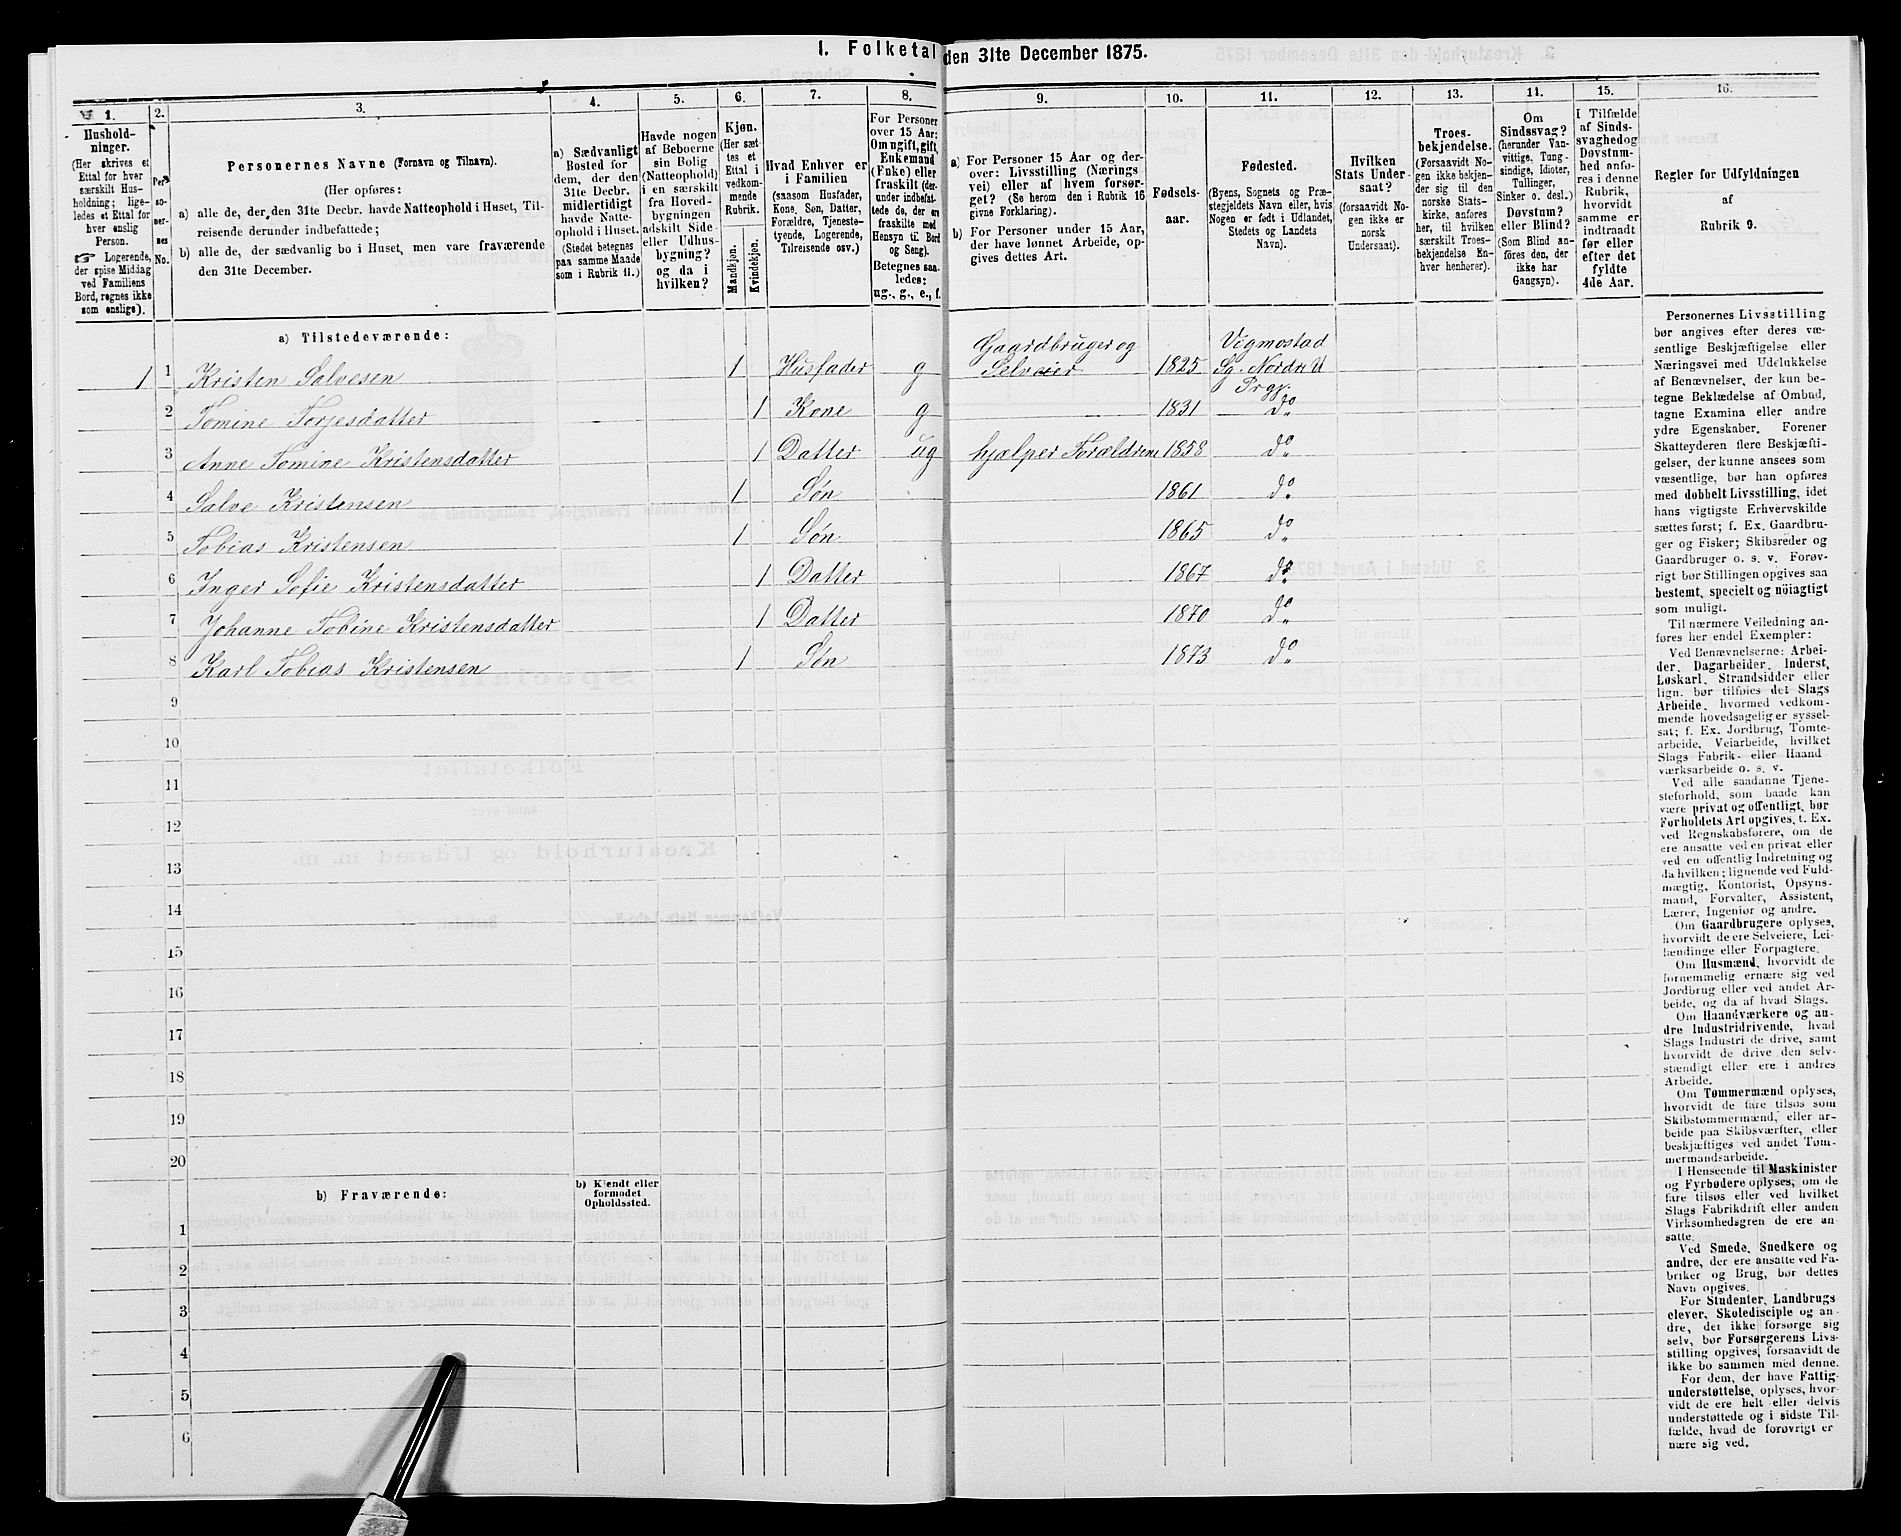 I. Folketal den 31te December 1875.
1.
Hushold-
ninger.
(Her skrives et
Ettal for hver
særskilt Hus-
holdning; lige-
ledes et Ettal for
hver enslig
Person.
☞ Logerende,
der spise Middag
ved Familiens
Bord, regnes ikke
som enslige).
2.
Per
so-
ner-
nes
No.
3.
Personernes Navne (Fornavn og Tilnavn).
(Her opføres:
a) alle de, der den 31te Decbr. havde Natteophold i Huset, Til-
reisende derunder indbefattede;
b) alle de, der sædvanlig bo i Huset, men vare fraværende
den 31te December.
4.
a) Sædvanligt
Bosted for
dem, der den
31te Decbr.
midlertidigt
havde Natte-
ophold i Huset.
(Stedet betegnes
paa samme Maade
som i Rubrik 11.)
5.
Havde nogen
af Beboerne
sin Bolig
(Natteophold)
i en særskilt
fra Hoved-
bygningen
adskilt Side-
eller Udhus-
bygning?
og da i
hvilken?
6.
Kjøn.
(Her sæt-
tes et
Ettal i
vedkom-
mende
Rubrik.
Mandkjøn.
Kvindekjøn.
7.
Hvad Enhver er
i Familien
(saasom Husfader,
Kone, Søn, Datter,
Forældre, Tjeneste-
tyende, Logerende,
Tilreisende osv.)
8.
For Personer
over 15 Aar:
Om ugift, gift,
Enkemand
(Enke) eller
fraskilt (der-
under indbefat-
tede de, der ere
fraskilte med
Hensyn til Bord
og Seng).
Betegnes saa-
ledes:
ug., g., e., f.
9.
a) For Personer 15 Aar og der-
over: Livsstilling (Nærings
vei) eller af hvem forsør-
get? (Se herom den i Rubrik 16
givne Forklaring).
b) For Personer under 15 Aar,
der have lønnet Arbeide, op-
gives dettes Art.
10.
Fødsels-
aar.
11.
Fødested.
(Byens, Sognets og Præ-
stegjeldets Navn eller, hvis
Nogen er født i Udlandet,
Stedets og Landets
Navn).
12.
Hvilken
Stats Under-
saat?
(forsaavidt No-
gen ikke er
norsk
Undersaat).
13.
Troes-
bekjendelse.
(Forsaavidt No-
gen ikke bekjen-
der sig til den
norske Stats-
kirke, anføres
her, til hvilken
særskilt Troes-
bekjendelse En-
hver henhører).
11.
Om
Sindssvag?
(herunder Van-
vittige, Tung-
sindige, Idioter,
Tullinger,
Sinker o. desl.)
Døvstum?
eller Blind?
(Som Blind an-
føres den, der
ikke har
Gangsyn).
15.
I Tilfælde
af Sinds-
svaghed og
Døvstum-
hed anfø-
res i denne
Rubrik,
hvorvidt
samme er
indtraadt
før eller
efter det
fyldte
4de Aar.
16.
Regler for Udfyldningen
af
Rubrik 9.
a) Tilstedeværende:
1 1 Kristen Salvesen 1 Husfader g Gaardbruger og Selveier 1825 Vigmostad Sg. Nordre U Prgj.
2 Tomine Torjesdatter 1 Kone g 1831 do
3 Anne Tomine Kristensdatter 1 Datter ug hjælper Forældrene 1858 do
4 Salve Kristensen 1 Søn 1861 do
5 Tobias Kristensen 1 Søn 1865 do
6 Inger Sofie Kristensdatter 1 Datter 1867 do
7 Johanne Tobine Kristensdatter 1 Datter 1870 do
8 Karl Tobias Kristensen 1 Søn 1873 do
9
10
11
12
13
14
15
16
17
18
19
20
b) Fraværende:
b) Kjendt eller
formodet
Opholdssted.
1
2
3
4
5
6
Personernes Livsstilling
bør angives efter deres væ-
sentlige Beskjæftigelse eller
Næringsvei med Udelukkelse
af Benævnelser, der kun be-
tegne Beklædelse af Ombud,
tagne Examina eller andre
ydre Egenskaber. Forener
Skatteyderen flere Beskjæfti-
gelser, der kunne ansees som
væsentlige, bør han opføres
med dobbelt Livsstilling, idet
hans vigtigste Erhvervskilde
sættes først; f. Ex. Gaardbru-
ger og Fisker; Skibsreder og
Gaardbruger o. s. v. Forøv-
rigt bør Stillingen opgives saa
bestemt, specielt og nöiagtigt
som muligt.
Til nærmere Veiledning an-
føres her endel Exempler:
Ved Benævnelserne: Arbei-
der, Dagarbeider, Inderst,
Løskarl, Strandsidder eller
lign. bør tilføies det Slags
Arbeide, hvormed vedkom-
mende hovedsagelig er syssel-
sat; f. Ex. Jordbrug, Tomte-
arbeide, Veiarbeide, hvilket
Slags Fabrik- eller Haand
værksarbeide o. s. v.
Ved alle saadanne Tjene-
steforhold, som baade kan
være privat og offentligt, bør
Forholdets Art opgives, t. Ex.
ved Regnskabsførere, om de
ere ansatte ved en privat eller
ved en offentlig Indretning og
da hvilken; lignende ved Fuld-
mægtig, Kontorist, Opsyns-
mand, Forvalter, Assistent,
Lærer, Ingeniør og andre.
Om Gaardbrugere oplyses,
hvorvidt de ere Selveiere, Lei-
lændinge eller Forpagtere.
Om Husmænd, hvorvidt de
fornemmelig ernære sig ved
Jordbrug eller ved andet Ar-
beide, og da af hvad Slags.
Om Haandværkere og an-
dre Industridrivende, hvad
Slags Industri de drive, samt
hvorvidt de drive den selv-
stændigt eller ere i andres
Arbeide.
Om Tømmermænd oplyses,
hvorvidt de fare tilsøs som
Skibstømmermænd, eller ar-
beide paa Skibsværfter, eller
beskjæftiges ved andet Tøm-
mermandsarbeide.
I Henseende til Maskinister
og Fyrbødere oplyses, om de
fare tilsøs eller ved hvilket
Slags Fabrikdrift eller anden
Virksomhedsgren de ere an-
satte.
Ved Smede, Snedkere og
andre, der ere ansatte ved Fa-
briker og Brug, bør dettes
Navn opgives.
For Studenter, Landbrugs
elever, Skoledisciple og an-
dre, der ikke forsørge sig
selv, bør Forsørgerens Livs-
stilling opgives, forsaavidt de
ikke bo sammen med denne.
For dem, der have Fattig-
understøttelse, oplyses, hvor-
vidt de ere helt eller delvis
understøttede og i sidste Til-
fælde, hvad de forøvrigt er
nære sig ved.